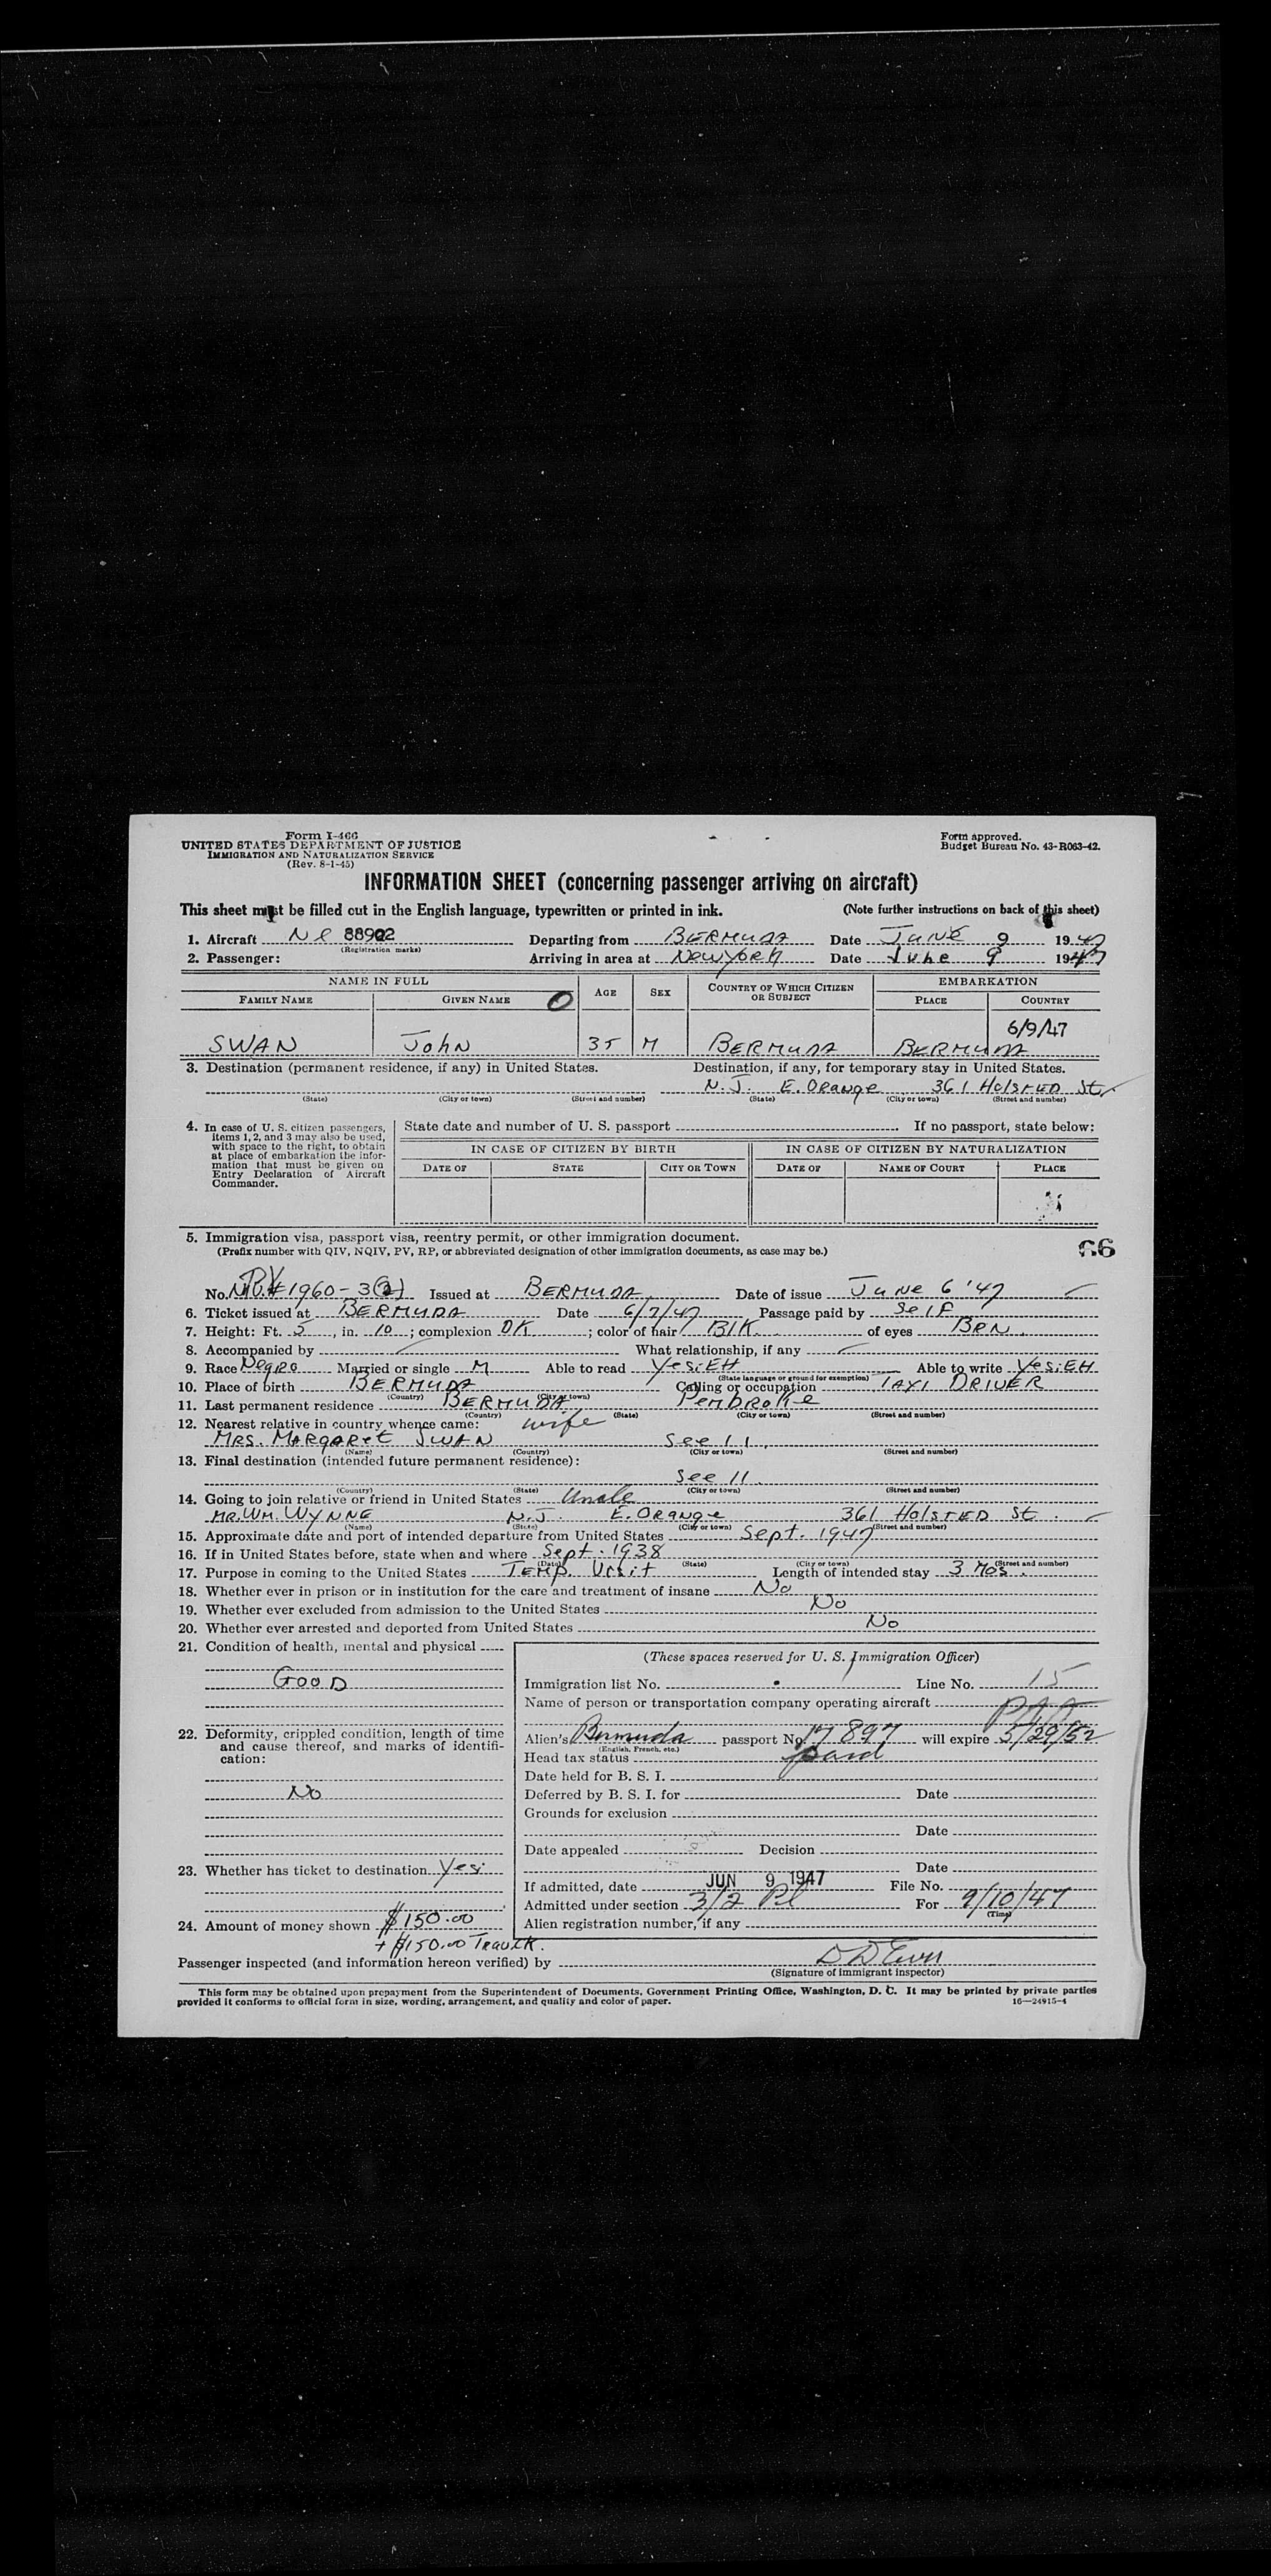 Form I-466
UNITED STATES DEPARTMENT OF JUSTICE
IMMIGRATION AND NATURALIZATION SERVICE
(Rev. 8-1-45)
Form approved.
Budget Bureau No. 43-R063-42.
INFORMATION SHEET (concerning passenger arriving on aircraft)
This sheet must be filled out in the English language, typewritten or printed in ink. (Note further instructions on back of this sheet)
1. Aircraft NC 88902 Departing from BERMUDA Date JUNE 9 1947
(Registration marks)
2. Passenger: Arriving in area at NEW YORK Date June 9 1947
NAME IN FULL AGE SEX COUNTRY OF WHICH CITIZEN OR SUBJECT EMBARKATION
FAMILY NAME GIVEN NAME PLACE COUNTRY
6/9/47
SWAN JohN 35 M BERMUDA BERMUDA
3. Destination (permanent residence, if any) in United States. Destination, if any, for temporary stay in United States.
N.J. E. ORange 361 HOlSTED St.
(State) (City or town) (Street and number) (State) (City or town) (Street and number)
4. In case of U. S. citizen passengers, items 1, 2, and 3 may also be used, with space to the right, to obtain at place of embarkation the information that must be given on Entry Declaration of Aircraft Commander.
State date and number of U. S. passport If no passport, state below:
IN CASE OF CITIZEN BY BIRTH IN CASE OF CITIZEN BY NATURALIZATION
DATE OF STATE CITY OR TOWN DATE OF NAME OF COURT PLACE
5. Immigration visa, passport visa, reentry permit, or other immigration document.
(Prefix number with QIV, NQIV, PV, RP, or abbreviated designation of other immigration documents, as case may be.)
66
No. PV# 1960-3(2) Issued at BERMUDA Date of issue JUNe 6 '47
6. Ticket issued at BERMUDA Date 6/7/47 Passage paid by SelF
7. Height: Ft. 5, in. 10; complexion DK; color of hair BlK of eyes BRN.
8. Accompanied by What relationship, if any
9. Race Negro Married or single M Able to read Yes: EH Able to write Yes: EH
(State language or ground for exemption)
10. Place of birth BERMUDA Calling or occupation TAXI DRIVER
(Country) (City or town)
11. Last permanent residence BERMUDA PemBROKe
(Country) (State) (City or town) (Street and number)
12. Nearest relative in country whence came: wife
MRS. MARGARet SWAN See 11.
(Name) (Country) (City or town) (Street and number)
13. Final destination (intended future permanent residence):
See 11.
(Country) (State) (City or town) (Street and number)
14. Going to join relative or friend in United States Uncle
MR. WM. WYNNE N.J. E. ORange 361 HOlSTED St.
(Name) (State) (City or town) (Street and number)
15. Approximate date and port of intended departure from United States Sept. 1947
16. If in United States before, state when and where Sept. 1938
(Date) (State) (City or town) (Street and number)
17. Purpose in coming to the United States TEMP. Visit Length of intended stay 3 mos.
18. Whether ever in prison or in institution for the care and treatment of insane No
19. Whether ever excluded from admission to the United States No
20. Whether ever arrested and deported from United States No
21. Condition of health, mental and physical
GOOD
22. Deformity, crippled condition, length of time and cause thereof, and marks of identification:
No
23. Whether has ticket to destination Yes.
24. Amount of money shown $150.00
+ $150.00
(These spaces reserved for U. S. Immigration Officer)
Immigration list No. Line No. 15
Name of person or transportation company operating aircraft PAA
Alien's Bermuda passport No. 17897 will expire 5/29/52
(English, French, etc.)
Head tax status paid
Date held for B. S. I.
Deferred by B. S. I. for Date
Grounds for exclusion
Date
Date appealed Decision
Date
If admitted, date JUN 9 1947 File No.
Admitted under section 3/2 For 9/10/47
(Time)
Alien registration number, if any
Passenger inspected (and information hereon verified) by
(Signature of immigrant inspector)
This form may be obtained upon prepayment from the Superintendent of Documents, Government Printing Office, Washington, D. C. It may be printed by private parties
provided it conforms to official form in size, wording, arrangement, and quality and color of paper. 16—24915-4